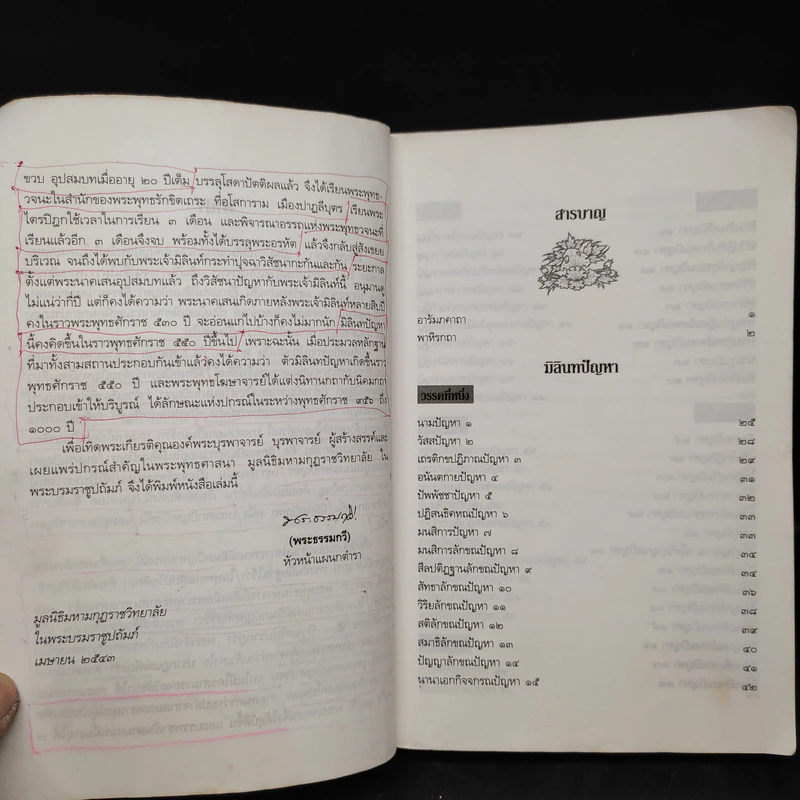 ขวบ อุปสมบทเมื่ออายุ ๒๐ ปีเต็ม บรรลุโสดาปัตติผลแล้ว จึงได้เรียนพระพุทธ-
วจนะในสำนักของพระพุทธรักขิตเถระ ที่อโสการาม เมืองปาฏลีบุตร เรียนพระ
ไตรปิฎกใช้เวลาในการเรียน ๓ เดือน และพิจารณาอรรถแห่งพระพุทธวจนะที่
เรียนแล้วอีก ๓ เดือนจึงจบ พร้อมทั้งได้บรรลุพระอรหัต แล้วจึงกลับสู่สังเขยย
บริเวณ จนถึงได้พบกับพระเจ้ามิลินท์กระทำปุจฉาวิสัชนากะกันและกัน ระยะกาล
ตั้งแต่พระนาคเสนอุปสมบทแล้ว ถึงวิสัชนาปัญหากับพระเจ้ามิลินท์นี้ อนุมานดู
ไม่แน่ว่ากี่ปี แต่ก็คงได้ความว่า พระนาคเสนเกิดภายหลังพระเจ้ามิลินท์หลายสิบปี
คงในราวพระพุทธศักราช ๕๓๐ ปี จะอ่อนแก่ไปบ้างก็คงไม่มากนัก มิลินทปัญหา
นี้คงคิดขึ้นในราวพุทธศักราช ๕๕๐ ปีขึ้นไป เพราะฉะนั้น เมื่อประมวลหลักฐาน
ที่มาทั้งสามสถานประกอบกันเข้าแล้วคงได้ความว่า ตัวมิลินทปัญหาเกิดขึ้นราว
พุทธศักราช ๕๕๐ ปี และพระพุทธโฆษาจารย์ได้แต่งนิทานกถากับนิคมกถา
ประกอบเข้าให้บริบูรณ์ ได้ลักษณะแห่งปกรณ์ในระหว่างพุทธศักราช ๙๕๖ ถึง
๑๐๐๐ ปี
เพื่อเทิดพระเกียรติคุณองค์พระบุรพาจารย์ บุรพาจารย์ ผู้สร้างสรรค์และ
เผยแพร่ปกรณ์สำคัญในพระพุทธศาสนา มูลนิธิมหามกุฏราชวิทยาลัย ใน
พระบรมราชูปถัมภ์ จึงได้พิมพ์หนังสือเล่มนี้
(พระธรรมกวี)
หัวหน้าแผนกตำรา
มูลนิธิมหามกุฏราชวิทยาลัย
ในพระบรมราชูปถัมภ์
เมษายน ๒๕๔๓
สารบาญ
อารัมภคาถา ๑
พาหิรกถา ๒
มิลินทปัญหา
วรรคที่หนึ่ง
นามปัญหา ๑ ๒๕
วัสสปัญหา ๒ ๒๘
เถรติกขปฏิภาณปัญหา ๓ ๒๙
อนันตกายปัญหา ๔ ๓๑
ปัพพัชชาปัญหา ๕ ๓๒
ปฏิสนธิคหณปัญหา ๖ ๓๓
มนสิการปัญหา ๗ ๓๓
มนสิการลักขณปัญหา ๘ ๓๔
สีลปติฏฐานลักขณปัญหา ๙ ๓๔
สัทธาลักขณปัญหา ๑๐ ๓๖
วิริยลักขณปัญหา ๑๑ ๓๘
สติลักขณปัญหา ๑๒ ๓๙
สมาธิลักขณปัญหา ๑๓ ๔๐
ปัญญาลักขณปัญหา ๑๔ ๔๑
นานาเอกกิจจกรณปัญหา ๑๕ ๔๒